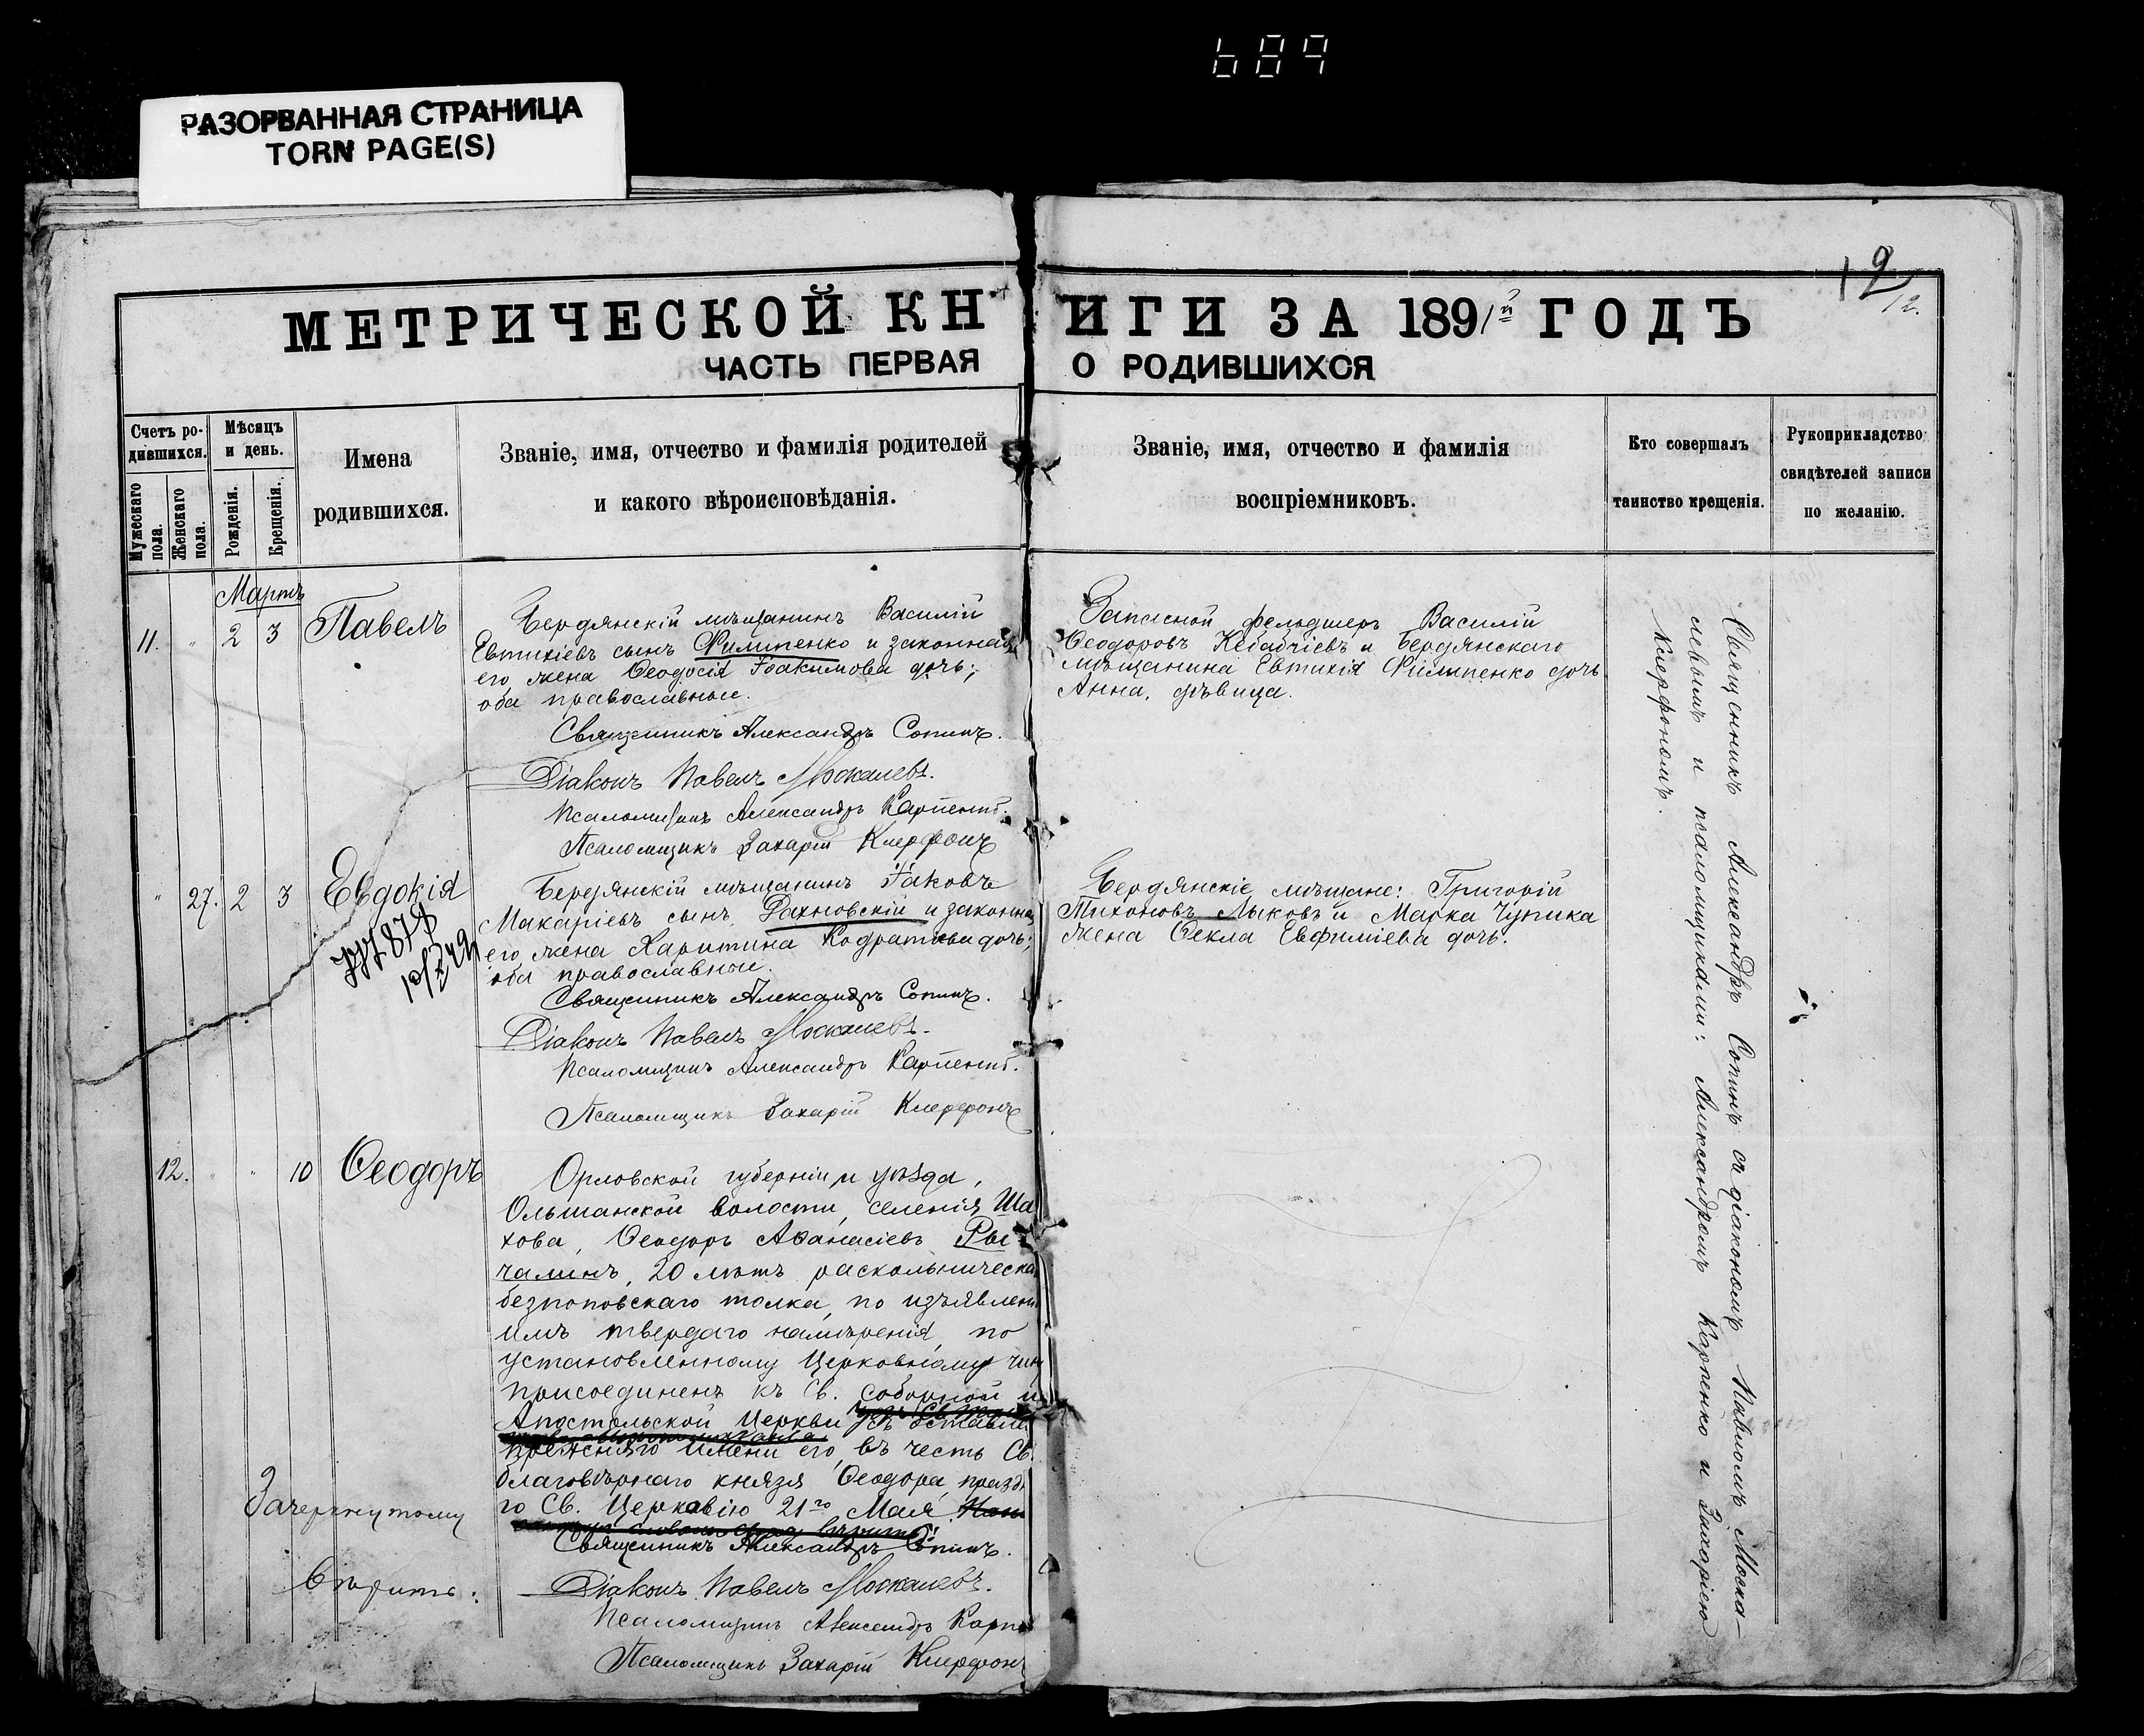 689
РАЗОРВАННАЯ СТРАНИЦА
TORN PAGE(S)
12
12.
МЕТРИЧЕСКОЙ КНИГИ ЗА 1891й ГОДЪ
ЧАСТЬ ПЕРВАЯ О РОДИВШИХСЯ
Счетъ ро-
дившихся.
Мужескаго пола.
Женскаго пола.
Мѣсяцъ
и день.
Рожденія.
Крещенія.
Имена
родившихся.
Званіе, имя, отчество и фамилія родителей
и какого вѣроисповѣданія.
Званіе, имя, отчество и фамилія
воспріемниковъ.
Кто совершалъ
таинство крещенія.
Рукоприкладство
свидѣтелей записи
по желанію.
Мартъ
11. " 2 3 Павелъ
Бердянскій мѣщанинъ Василій
Евтихіевъ сынъ Филипенко и законная
его жена Ѳеодосія Іоакимова дочь;
оба православные.
Священникъ Александръ Сопинъ.
Діаконъ Павелъ Москалевъ.
Псаломщикъ Александръ Карпенко.
Псаломщикъ Захарій Клерфонъ
Запасной фельдшеръ Василій
Ѳеодоровъ Кебабчіевъ и Бердянскаго
мѣщанина Евтихія Филипенко дочь
Анна, дѣвица.
" 27. 2 3 Евдокія
Бердянскій мѣщанинъ Іаковъ
Макаріевъ сынъ Рахновскій и законна
его жена Харитина Кодратіева дочь;
оба православные.
Священникъ Александръ Сопинъ.
Діаконъ Павелъ Москалевъ.
Псаломщикъ Александръ Карпенко.
Псаломщикъ Захарій Клерфонъ
Бердянскіе мѣщане: Григорій
Тихоновъ Лыковъ и Марка Чупика
жена Ѳекла Евфиміева дочь.
12. " " 10 Ѳеодоръ
Орловской губерніи и уѣзда,
Ольшанской волости, селенія Ша
хова, Ѳеодоръ Аѳанасіевъ Ры
чалинъ, 20 лѣтъ раскольническа
безпоповскаго толка, по изъявлені
имъ твердаго намѣренія, по
установленному Церковному чин
присоединенъ къ Св. Соборной и
Апостольской Церкви съ оставле
прежняго имени его, въ честь Св.
благовѣрнаго князя Ѳеодора, празд
го Св. Церковію 21го Мая.
Священникъ Александръ Сопинъ.
Діаконъ Павелъ Москалевъ.
Псаломщикъ Александръ Карпе
Псаломщикъ Захарій Клерфонъ
Зачеркнутому
вѣрить:
Священникъ Александръ Сопинъ съ діакономъ Павломъ Моска-
левымъ и псаломщиками: Александромъ Карпенко и Захаріею
Клерфономъ.